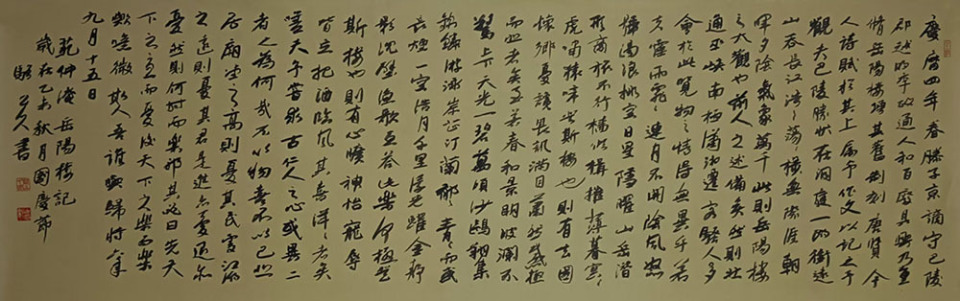 慶曆四年春滕子京謫守巴陵
郡越明年政通人和百廢具興乃重
脩岳陽樓增其舊制刻唐賢今
人詩賦於其上屬予作文以記之予
觀夫巴陵勝狀在洞庭一湖銜遠
山吞長江浩浩湯湯橫無際涯朝
暉夕陰氣象萬千此則岳陽樓
之大觀也前人之述備矣然則北
通巫峽南極瀟湘遷客騷人多
會於此覽物之情得無異乎若
夫霪雨霏霏連月不開陰風怒
號濁浪排空日星隱曜山岳潛
形商旅不行檣傾楫摧薄暮冥冥
虎嘯猿啼登斯樓也則有去國
懷鄉憂讒畏譏滿目蕭然感極
而悲者矣至若春和景明波瀾不
驚上下天光一碧萬頃沙鷗翔集
錦鱗游泳岸芷汀蘭郁郁青青而或
長煙一空皓月千里浮光躍金靜
影沉璧漁歌互答此樂何極登
斯樓也則有心曠神怡寵辱
皆忘把酒臨風其喜洋洋者矣
嗟夫予嘗求古仁人之心或異二
者之為何哉不以物喜不以己悲
居廟堂之高則憂其民處江湖
之遠則憂其君是進亦憂退亦
憂然則何時而樂耶其必曰先天
下之憂而憂後天下之樂而樂
歟噫微斯人吾誰與歸時六年
九月十五日
范仲淹岳陽樓記
歲在乙未秋月國慶節
書